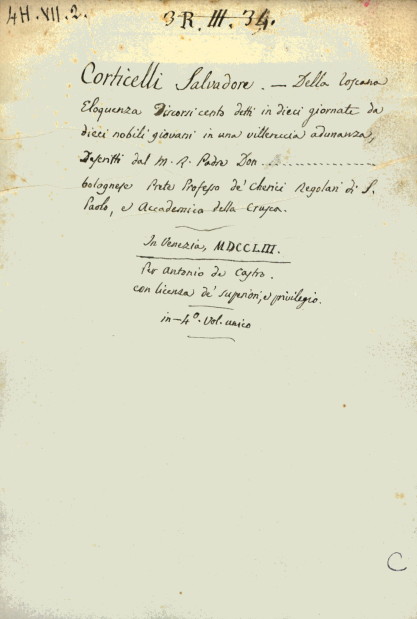 4H.VII.2. 3R.III.34.
Corticelli Salvadore. — Della Toscana
Eloquenza Discorsi cento detti in dieci giornate da
dieci nobili giovani in una villereccia adunanza,
Descritti dal M. R. Padre Don....................
bolognese Prete Professo de' Cherici Regolari di S.
Paolo, e Accademico della Crusca.
In Venezia, MDCCLIII.
Per Antonio de Castro.
con licenza de' superiori, e privilegio.
in-4º. Vol. unico
C